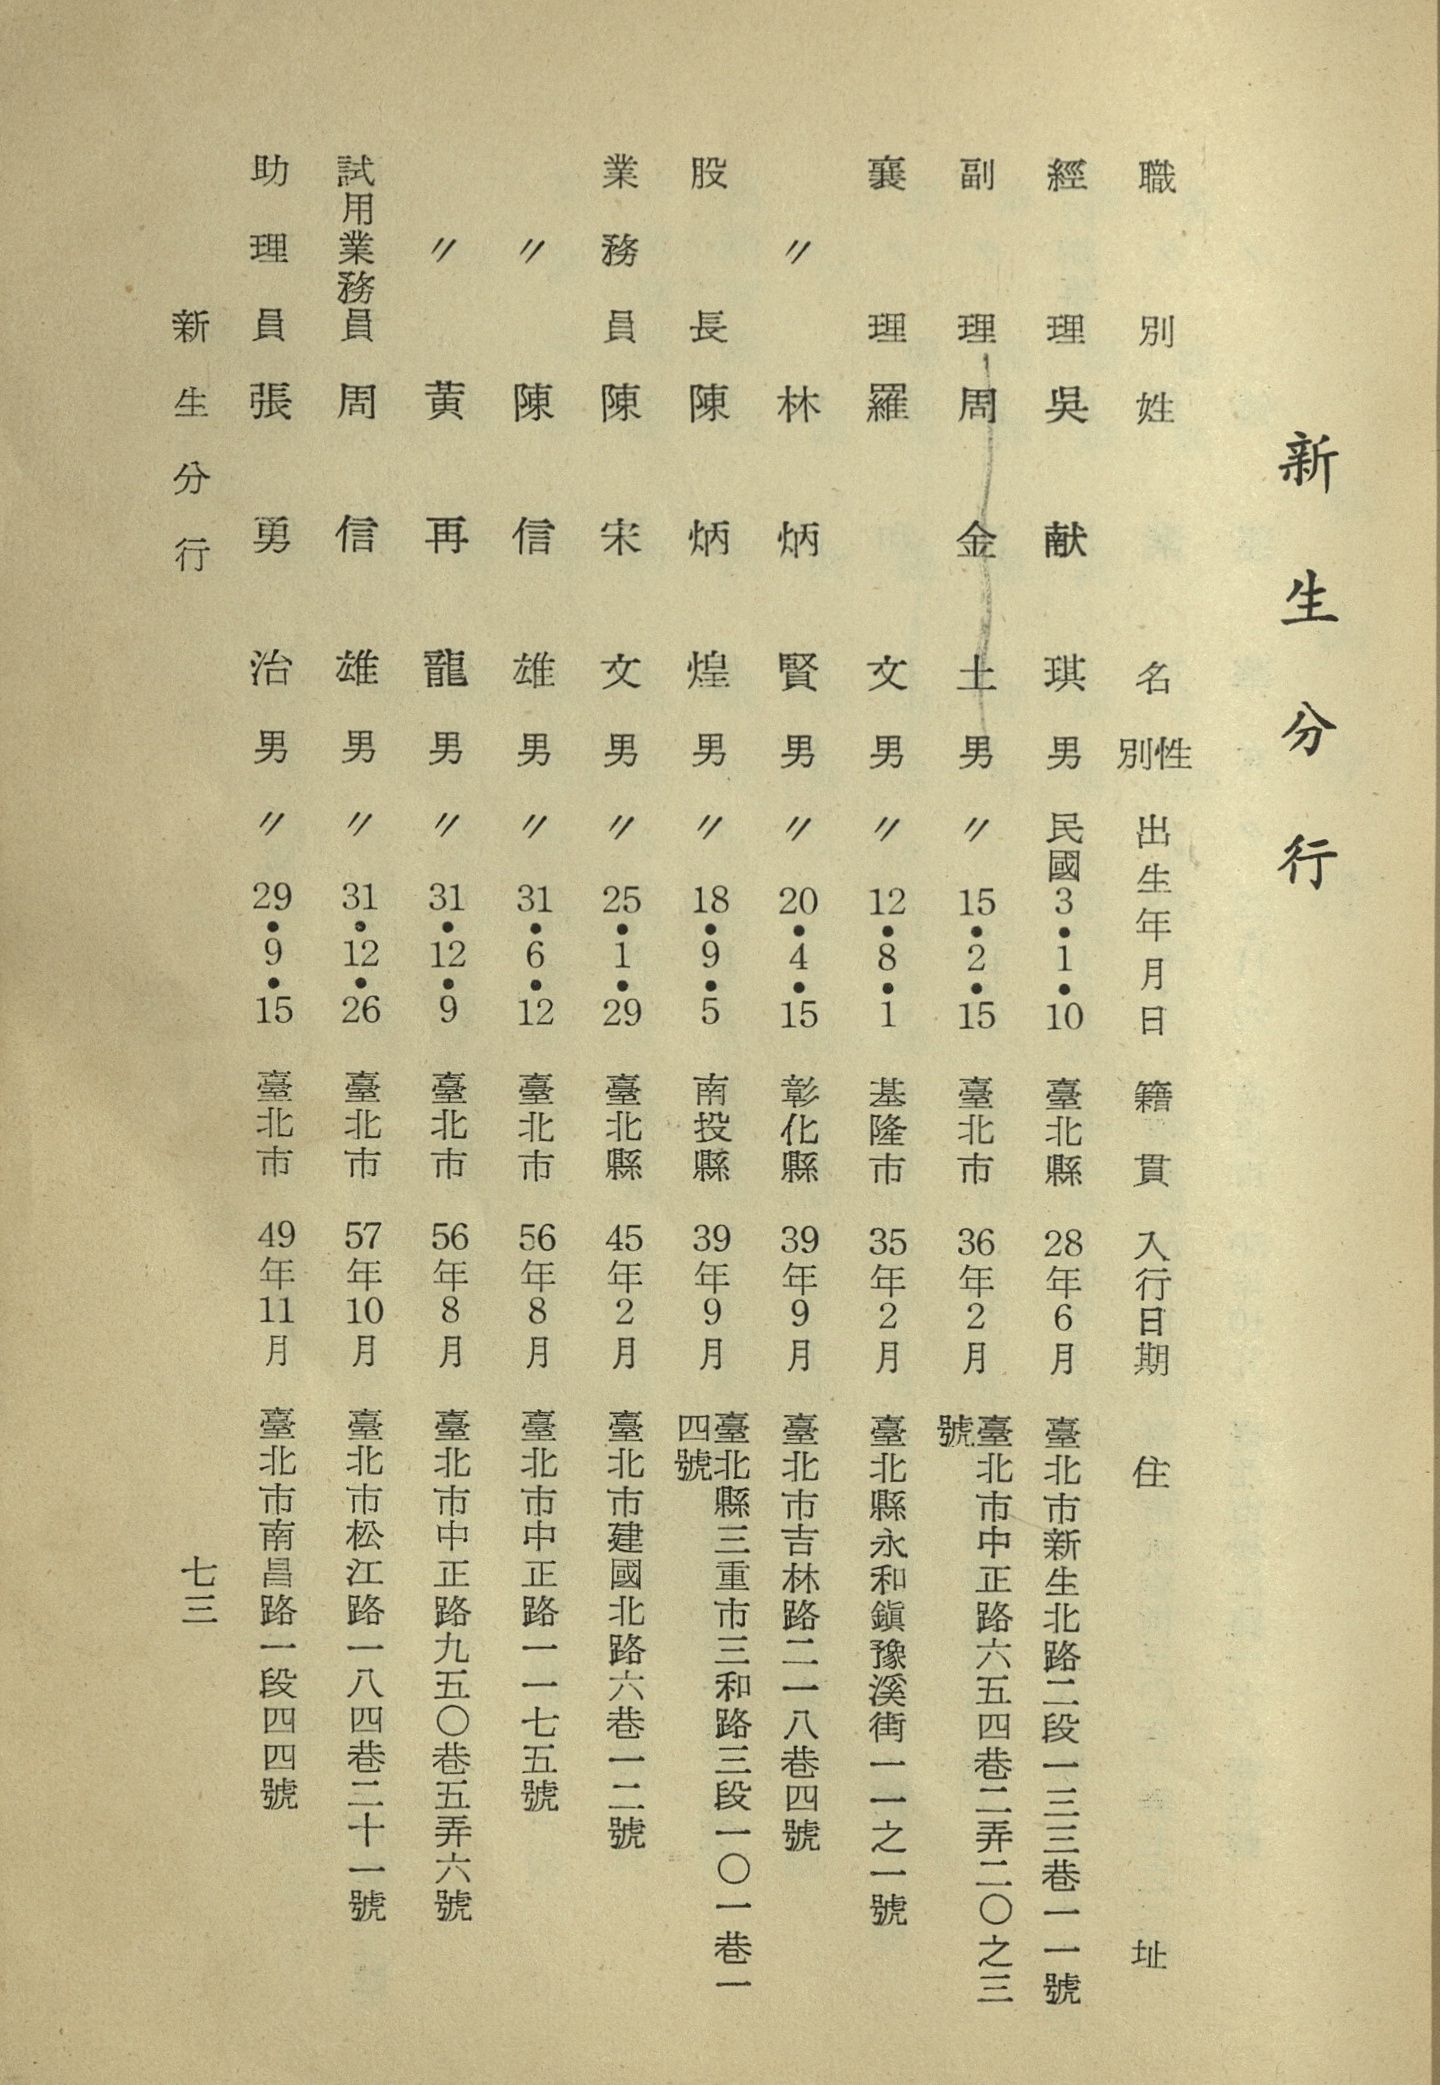 新生分行
職別 姓名 性別 出生年月日 籍貫 入行日期 住址
經理 吳献琪 男 民國3•1•10 臺北縣 28年6月 臺北市新生北路二段一三三巷一一號
副理 周金土 男 〃15•2•15 臺北市 36年2月 臺北市中正路六五四巷二弄二〇之三
號
襄理 羅文 男 〃12•8•1 基隆市 35年2月 臺北縣永和鎭豫溪街一一之一號
〃 林炳賢 男 〃20•4•15 彰化縣 39年9月 臺北市吉林路二一八巷四號
股長 陳炳煌 男 〃18•9•5 南投縣 39年9月 臺北縣三重市三和路三段一〇一巷一
四號
業務員 陳宋文 男 〃25•1•29 臺北縣 45年2月 臺北市建國北路六巷一二號
〃 陳信雄 男 〃31•6•12 臺北市 56年8月 臺北市中正路一一七五號
〃 黃再龍 男 〃31•12•9 臺北市 56年8月 臺北市中正路九五〇巷五弄六號
試用業務員 周信雄 男 〃31•12•26 臺北市 57年10月 臺北市松江路一八四巷二十一號
助理員 張勇治 男 〃29•9•15 臺北市 49年11月 臺北市南昌路一段四四號
新生分行
七三